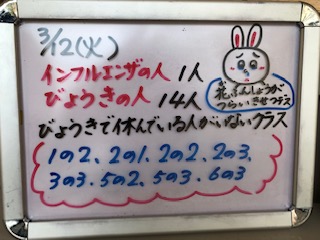 3/12(火)
インフルエンザの人 1人
びょうきの人 14人
花ふんしょうが
つらいきせつデス
びょうきで休んでいる人がいないクラス
1の2、2の1、2の2、2の3、
3の3、5の2、5の3、6の3